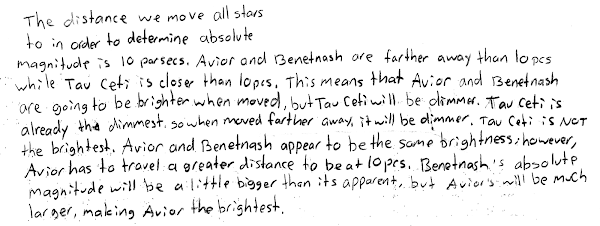 The distance we move all stars
to in order to determine absolute
magnitude is 10 parsecs. Avior and Benetnash are farther away than 10 pcs
while Tau Ceti is closer than 10pcs. This means that Avior and Benetnash
are going to be brighter when moved, but Tau Ceti will be dimmer. Tau Ceti is
already the dimmest, so when moved farther away, it will be dimmer. Tau Ceti is NOT
the brightest. Avior and Benetnash appear to be the same brightness, however,
Avior has to travel a greater distance to be at 10pcs. Benetnash's absolute
magnitude will be a little bigger than its apparent, but Avior's will be much
larger, making Avior the brightest.